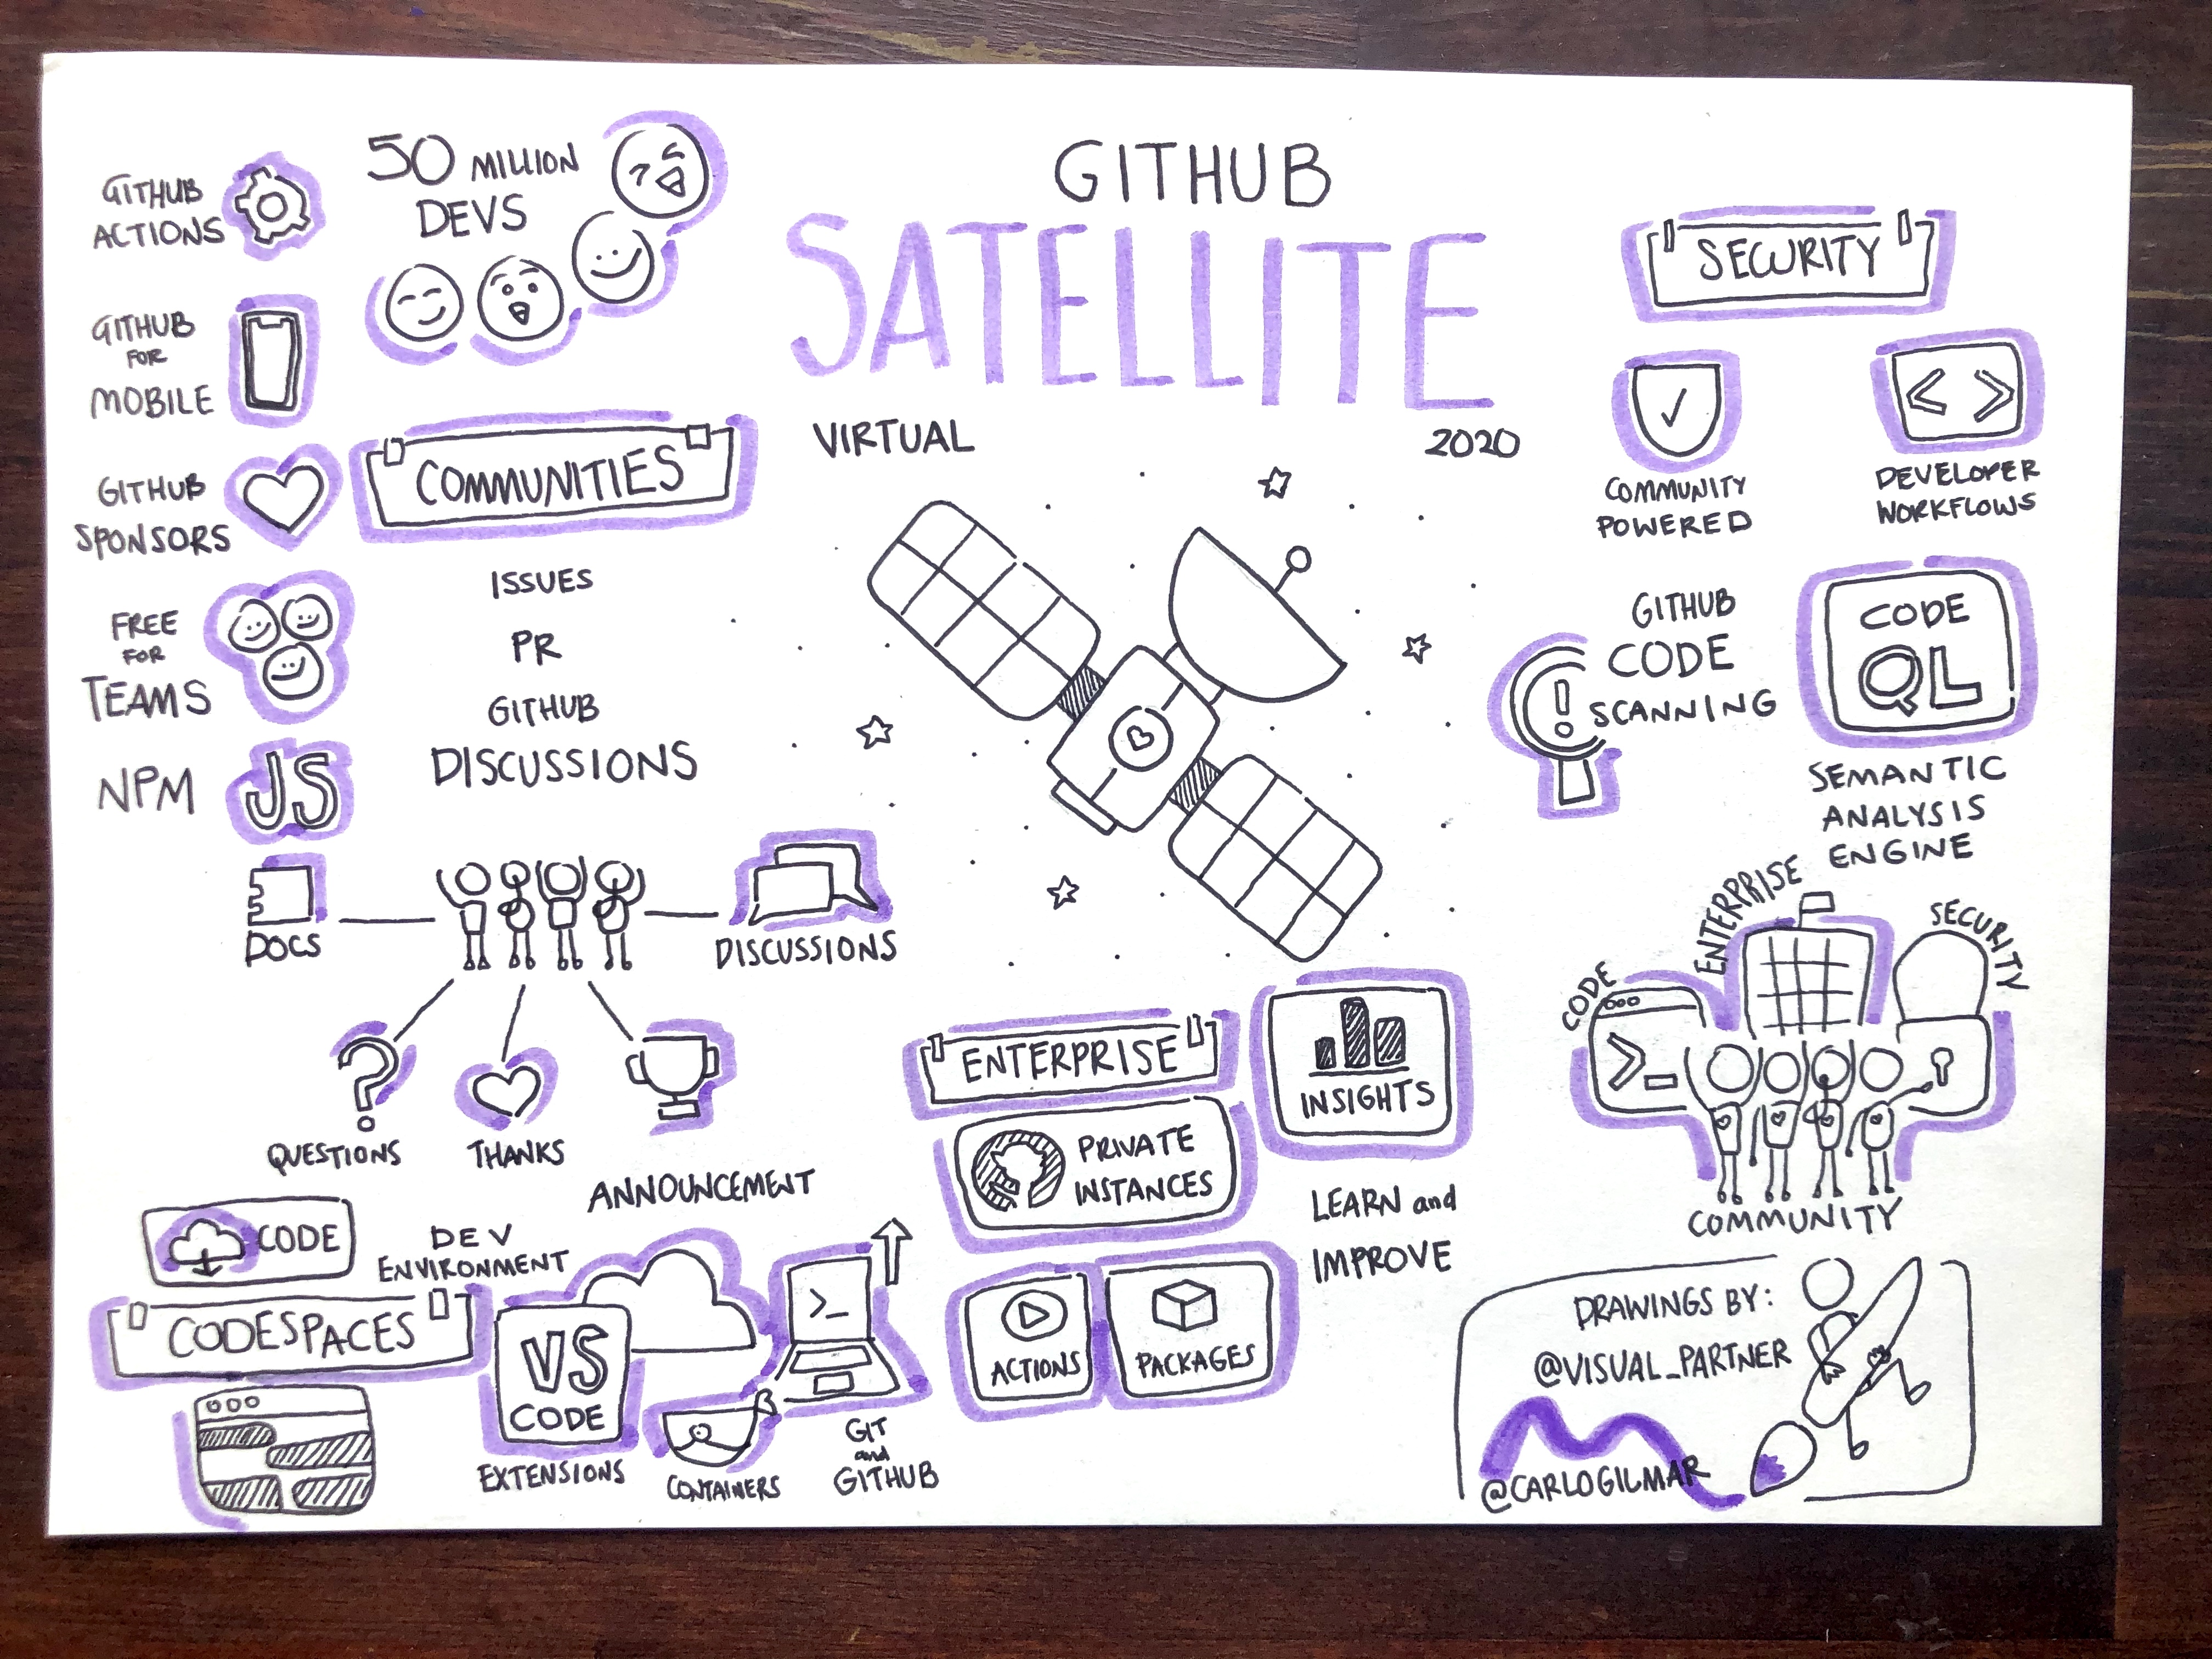 GITHUB
SATELLITE
VIRTUAL
2020
GITHUB
ACTIONS
GITHUB
FOR
MOBILE
GITHUB
SPONSORS
FREE
FOR
TEAMS
NPM
JS
50 MILLION
DEVS
COMMUNITIES
ISSUES
PR
GITHUB
DISCUSSIONS
DOCS
DISCUSSIONS
QUESTIONS
THANKS
ANNOUNCEMENT
CODE
DEV
ENVIRONMENT
CODESPACES
VS
CODE
EXTENSIONS
CONTAINERS
>_
GIT
and
GITHUB
ENTERPRISE
PRIVATE
INSTANCES
ACTIONS
PACKAGES
INSIGHTS
LEARN and
IMPROVE
SECURITY
COMMUNITY
POWERED
< >
DEVELOPER
WORKFLOWS
GITHUB
CODE
SCANNING
!
CODE
QL
SEMANTIC
ANALYSIS
ENGINE
CODE
ENTERPRISE
SECURITY
>_
COMMUNITY
DRAWINGS BY:
@VISUAL_PARTNER
@CARLOGILMAR